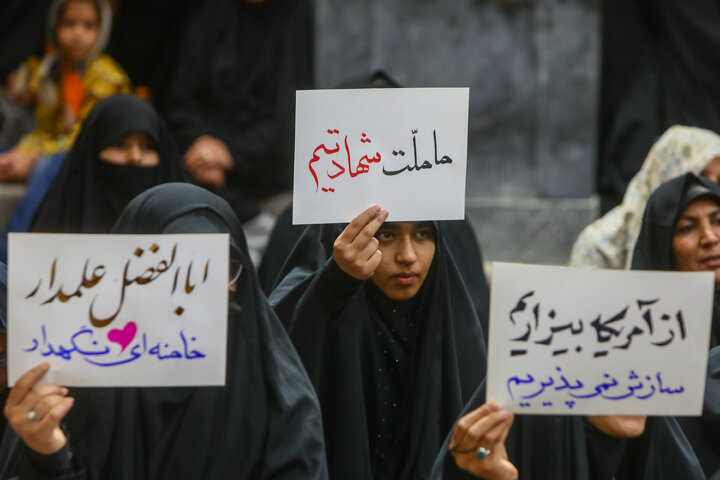 ما ملّت شهادتیم
اباالفضل علمدار
خامنه ای نگهدار
از آمریکا بیزاریم
سازش نمی پذیریم